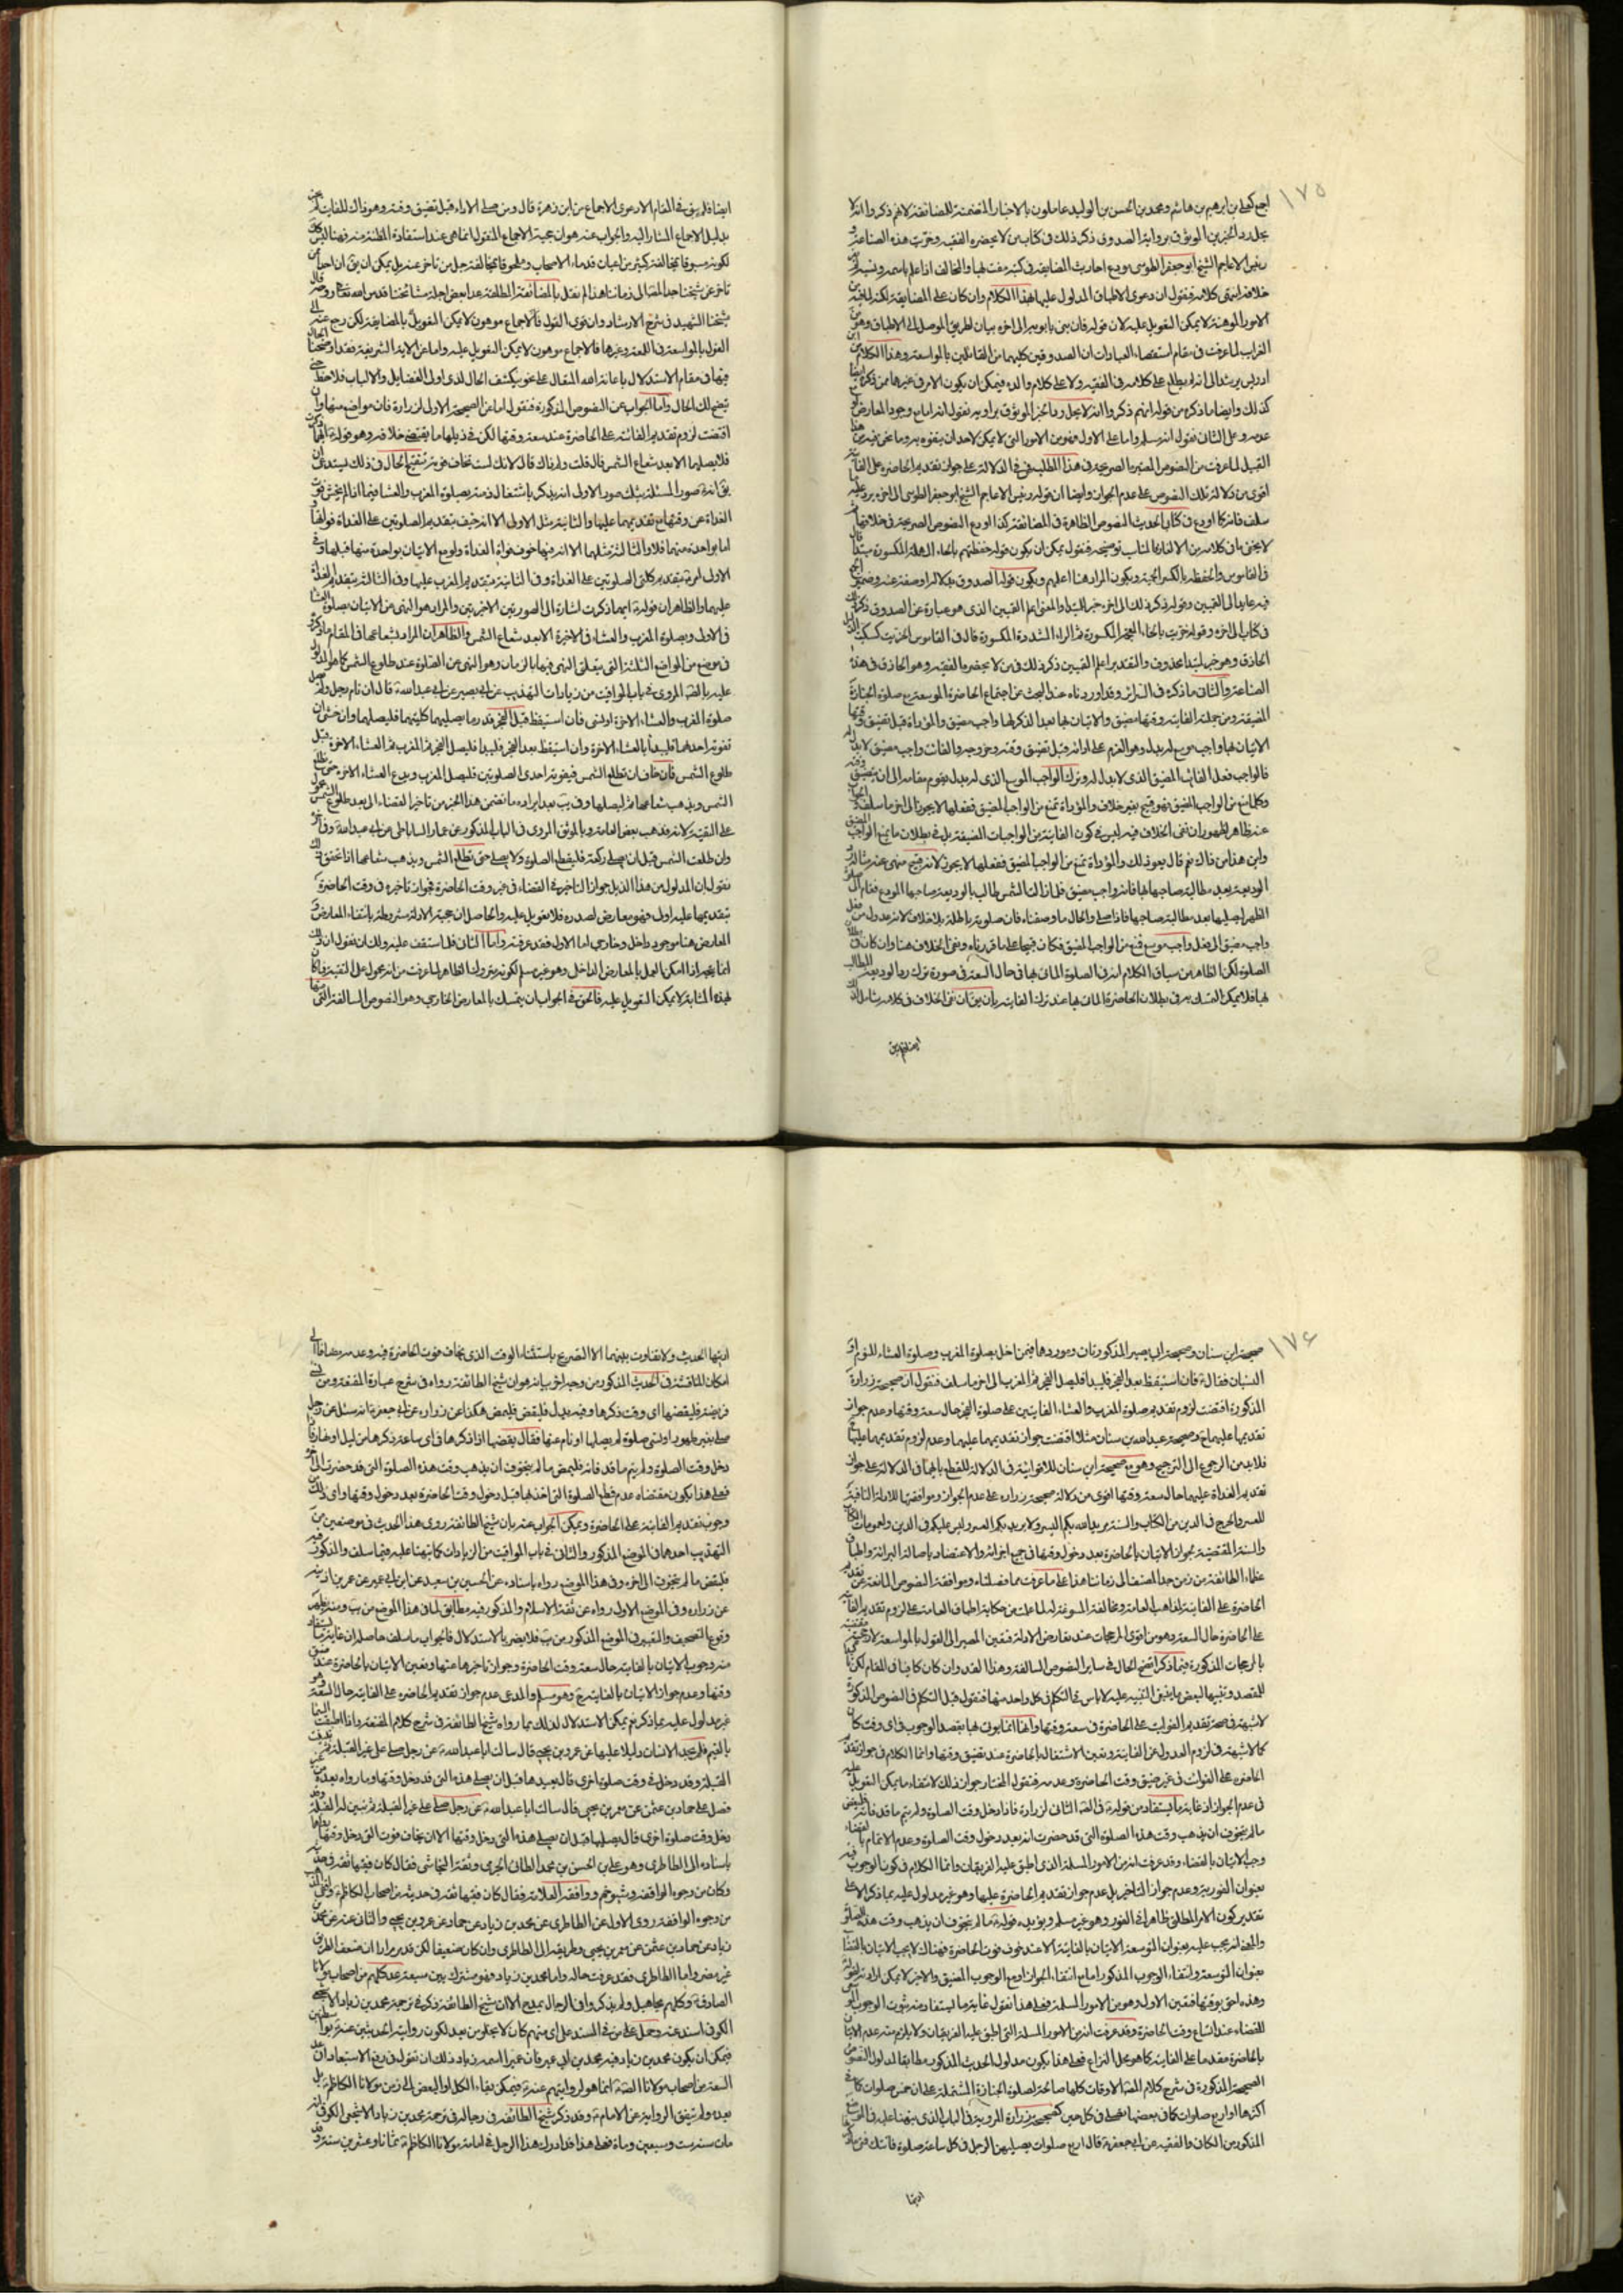 ١٧٥
اجمع كعلي بن ابرهيم بن هاشم ومحمد بن الحسن بن الوليد عاملون بالاخبار المتضمنة للمضايقة لانهم ذكروا انه لا
يحل رد الخبر الموثوق برواية الصدوق ذكر ذلك في كتاب من لا يحضره الفقيه وخريت هذه الصناعة و
رئيس الاعاجم الشيخ ابو جعفر الطوسي مودع احاديث المضايقة في كتبه مفت بها والمخالف اذا علم باسمه ونسبه لم يضر
خلافه انتهى كلامه فنقول ان دعوى الاطباق المدلول عليها بهذا الكلام وان كان على المضايقة لكنه
الامور الموهنة لا يمكن التعويل عليه لان قوله فان بني بابويه الى اخره بيان لطريق الموصل الى الاطباق وهو من
الغراب لما عرفت في مقام استقصاء العبارات ان الصدوقين كليهما من القائلين بالمواسعة وهذا الكلام من ابن
ادريس يرشد الى انه لم يطلع على كلامه في الفقيه ولا على كلام والده فيمكن ان يكون الامر في غيرهما ممن ذكره ايضا
كذلك وايضا ما ذكره من قوله انهم ذكروا انه لا يحل رد الخبر الموثوق براويه نقول انه اما مع وجود المعارض او
عدمه وعلى الثاني نقول انه مسلم واما على الاول فهو من الامور التي لا يمكن لاحد ان يتفوه به وما نحن فيه من هذا
القبيل لما عرفت من النصوص المعتبرة الصريحة في هذا المطلب في الدلالة على جواز تقديم الحاضرة على الفائتة
اقوى من دلالة تلك النصوص على عدم الجواز وايضا ان قوله ورئيس الاعاجم الشيخ ابو جعفر الطوسي الى اخره يرد عليه
سلف فانه كما اودع في كتاب الحديث النصوص الظاهرة في المضايقة كذا اودع النصوص الصريحة في خلافها
لا يخفى ما في كلامه من الالفاظ المناسب توضيحه فنقول يمكن ان يكون قوله حفظتهم بالحاء المهملة المكسورة مبتدأ قال
في القاموس والحفظة بالكسر الحمية ويكون المراد هنا اعلمهم ويكون قوله الصدوق بدلا له او صفة عنه وضمير الجمع
فيه عايد الى القميين وقوله ذكر ذلك الى اخره خبر للمبتدا والمعنى اعلم القميين الذي هو عبارة عن الصدوق ذكر ذلك
في كتاب الى اخره وقوله خريت بالخاء المعجمة المكسورة ثم الراء المشددة المكسورة قال في القاموس الخريت كسكيت الدليل
الحاذق وهو خبر لمبتدأ محذوف والتقدير اعلم القميين ذكر ذلك في من لا يحضره الفقيه وهو الحاذق في هذه
الصناعة والثاني ما ذكره في السرائر وقد اوردناه عند البحث عن اجتماع الحاضرة الموسعة مع صلوة الجنازة
المضيقة ومن جملته الفايتة وقتها مضيق والاتيان بها بعد الذكر لها واجب مضيق والمؤداة قبل تضيق وقتها
الاتيان بها واجب موسع له بدل وهو العزم على ادائه قبل تضيق وقته وخروجه والفائت واجب مضيق لا بدل له
فالواجب فعل الفائت المضيق الذي لا بدل له وترك الواجب الموسع الذي له بدل يقوم مقامه الى ان يتضيق وقته
وكلما منع من الواجب المضيق فهو قبيح بغير خلاف والمؤداة تمنع من الواجب المضيق ففعلها لا يجوز الى اخر ما سلف
عنه ظاهر لظهور ان نفي الخلاف فيه ليس في كون الفايتة من الواجبات المضيقة بل في بطلان ما يمنع الواجب المضيق
واين هذا من ذاك نعم قال بعد ذلك والمؤداة تمنع من الواجب المضيق ففعلها لا يجوز لانه قبيح منهي عنه مثاله رد
الوديعة بعد مطالبة صاحبها بها فانه واجب مضيق فلما زالت الشمس طالب بالوديعة صاحبها المودع فقام الى صلوة
الظهر ليصليها بعد مطالبة صاحبها فاذا صلى والحال ما وصفناه فان صلوته باطلة بلا خلاف لانه عدول من فعل
واجب مضيق الى فعل واجب موسع فمنع من الواجب المضيق فكان قبيحا على ما قررناه ونفي الخلاف هنا وان كان في بطلان
الصلوة لكن الظاهر من سياق الكلام انه في الصلوة الماتى بها في حال السعة في صورة ترك رد الوديعة المطالب
بها فلا يمكن التمسك به في بطلان الحاضرة الماتى بها عند ترك الفايتة بان يق ان نفي الخلاف في كلامه شامل لذلك
ايضا فلم يبق
ايضا فلم يبق في المقام الا دعوى الاجماع من ابن زهرة قال ومن صلى الاداء قبل تضيق وقته وهو ذاكر للفايت لم يجز
بدليل الاجماع المشار اليه والجواب عنه هو ان حجية الاجماع المنقول انما هي عند استفادة المظنة منه وهنا ليس كك
لكونه مسبوقا بمخالفة كثير من اعيان قدماء الاصحاب وملحوقا بمخالفة جل من تاخر عنه بل يمكن ان يق ان احدا ممن
تاخر عن شيخنا جد المتعالي زماننا هذا لم نقل بالمضايقة المطلقة عدا بعض اجلة مشائخنا قدس الله تعالى روحه قال
شيخنا الشهيد في شرح الارشاد وان قوى القول فالاجماع موهون لا يمكن التعويل بالمضايقة لكن رجع عنه الى
القول بالمواسعة في اللمعة وغيرها فالاجماع موهون لا يمكن التعويل عليه واما عن الاية الشريفة فقد اوضحنا الحال
فيها في مقام الاستدلال باعانة الله المتعال على نحو يكشف الحال لدى اولي الفضايل والالباب فلاحظ حتى
يتضح لك الحال واما الجواب عن النصوص المذكورة فنقول اما عن الصحيحة الاولى لزرارة فان مواضع منها وان
اقتضت لزوم تقديم الفائتة على الحاضرة عند سعة وقتها لكن في ذيلها ما يقتضي خلافه وهو قوله ايهما ذكرت
فلا تصلهما الا بعد شعاع الشمس قال قلت ولم ذاك قال لانك لست تخاف فوته تنقيح الحال في ذلك يستدعي ان
يق انه صور المسئلة بثلث صور الاولى انه يذكر باشتغال ذمته بصلوة المغرب والعشاء فيما اذا لم يخش فوت
الغداة عن وقتها مع تقديمهما عليها والثانية مثل الاولى الا انه خيف بتقديم الصلوتين على الغداة فواتها
اما بواحدة منهما فلا والثالثة مثلهما الا انه فيها خوف فوات الغداة ولو مع الاتيان بواحدة منها قبلها وفي
الاولى امر بتقديم كلتي الصلوتين على الغداة وفي الثانية بتقديم المغرب عليها وفي الثالثة بتقديم الغداة
عليهما والظاهر ان قوله ايهما ذكرت اشارة الى الصورتين الاخيرتين والمراد هو النهي عن الاتيان بصلوة العشاء
في الاولى وبصلوة المغرب والعشاء في الاخيرة الا بعد شعاع الشمس والظاهر ان المراد بشعاعها في المقام
في موضع من المواضع الثلثة التي يتعلق النهي فيها بالزمان وهو النهي عن الصلوة عند طلوع الشمس كما هو المدلول
عليه بالصحيح المروي في باب المواقيت من زيادات التهذيب عن ابي بصير عن ابي عبد الله قال ان نام رجل ولم يصل
صلوة المغرب والعشاء الاخرة او نسي فان استيقظ قبل الفجر قدر ما يصليهما كلتيهما فليصلهما وان خشي ان
تفوته احدهما فليبدأ بالعشاء الاخرة وان استيقظ بعد الفجر فليبدا فليصل الفجر ثم المغرب ثم العشاء الاخرة قبل
طلوع الشمس فان خاف ان تطلع الشمس فيفوته احدى الصلوتين فليصل المغرب ويدع العشاء الاخرة حتى تطلع
الشمس ويذهب شعاعها ثم ليصلها وفي يب بعد ايراده ما تضمن هذا الخبر من تاخير القضاء الى بعد طلوع الشمس محمول
على التقية لانه مذهب بعض العامة وبالموثق المروي في الباب المذكور عن عمار الساباطي عن ابي عبد الله وفي اخره
وان طلعت الشمس قبل ان يصلي ركعة فليقطع الصلوة ولا يصلي حتى تطلع الشمس ويذهب شعاعها اذا تحقق ذلك
نقول ان المدلول من هذا الذيل جواز التاخير في القضاء في غير وقت الحاضرة فجواز تاخيره في وقت الحاضرة
بتقديمها عليه اولى فهو معارض لصدره فلا تعويل عليه والحاصل ان حجية الادلة مشروطة بانتفاء المعارض و
المعارض هنا موجود داخل وخارجي اما الاول فقد عرفته واما الثاني فلما ستقف عليه ولك ان تقول ان ذلك
انما يصير اذا امكن العمل بالمعارض الداخل وهو غير مسلم لكونه متروك الظاهر لما عرفت من انه محمول على التقية فاذا كان
بهذه المثابة لا يمكن التعويل عليه فالحق في الجواب ان يتمسك بالمعارض الخارجي وهو النصوص السالفة التي منها
١٧٦
صحيحة ابن سنان وصحيحة ابي بصير المذكورتان وموردهما فيمن اخل بصلوة المغرب وصلوة العشاء للنوم او
النسيان فقال فان استيقظ بعد الفجر فليبدا فليصل الفجر ثم المغرب الى اخر ما سلف فنقول ان صحيحة زرارة
المذكورة اقتضت لزوم تقديم صلوة المغرب والعشاء الفايتتين على صلوة الفجر حال سعة وقتها وعدم جواز
تقديمها عليهما وصحيحة عبد الله بن سنان مثلا اقتضت جواز تقديمها عليهما وعدم لزوم تقديمهما عليها
فلا بد من الرجوع الى الترجيح وهو مع صحيحة ابن سنان للاقوائية في الدلالة للقطع بانها في الدلالة على جواز
تقديم الغداة عليهما حال سعة وقتها اقوى من دلالة صحيحة زرارة على عدم الجواز وموافقتها للادلة النافية
للعسر والحرج في الدين من الكتاب والسنة يريد الله بكم اليسر ولا يريد بكم العسر وليس عليكم في الدين ولعمومات الكتاب
والسنة المقتضية لجواز الاتيان بالحاضرة بعد دخول وقتها في جميع اجزائه والاعتضاد باصالة البرائة واطباق
علماء الطائفة من زمن جد المصنف الى زماننا هذا على ما عرفت مما فصلناه وموافقة النصوص المانعة عن تقديم
الحاضرة على الفايتة لمذاهب العامة ومخالفة المسوغة له لما علمت من حكاية اطباق العامة على لزوم تقديم الفايتة
على الحاضرة حال السعة وهو من اقوى المرجحات عند تعارض الادلة فتعين المصير الى القول بالمواسعة
بالمرجحات المذكورة فيما ذكر اتضح الحال في ساير النصوص السالفة وهذا القدر وان كان كافيا في المقام لكن
للمقصد وتنبيها لبعض ما ينبغي التنبيه عليه لا باس بما لتكلم في كل واحد منها فنقول قبل التكلم في النصوص المذكورة
لا شبهة في صحة تقديم الفوايت على الحاضرة في سعة وقتها وانها انما يوتى بها بقصد الوجوب في اي وقت كان
كما لا شبهة في لزوم العدول عن الفايتة وتعين الاشتغال بالحاضرة عند تضيق وقتها وانما الكلام في جواز تقديم
الحاضرة على الفوائت في غير ضيق وقت الحاضرة وعدمه فنقول المختار جواز ذلك لانتفاء ما يمكن التعويل عليه
في عدم الجواز اذ غاية ما يستفاد من قوله في الصحيح الثاني لزرارة فاذا دخل وقت الصلوة ولم يتم ما قد فاته فليقض
ما لم يتخوف ان يذهب وقت هذه الصلوة التي قد حضرت انه بعد دخول وقت الصلوة وعدم الاتمام بالقضاء
وجب الاتيان بالقضاء وقد عرفت انه من الامور المسلمة الذي اطبق عليه الفريقان وانما الكلام في كون الوجوب فيه
بعنوان الفورية وعدم جواز التاخير بل عدم جواز تقديم الحاضرة عليها وهو غير مدلول عليه بما ذكر الا على
تقدير كون الامر المطلق ظاهرا في الفور وهو غير مسلم ويؤيده قوله ما لم يتخوف ان يذهب وقت هذه الصلوة
والمعنى انه يجب عليه بعنوان التوسعة الاتيان بالفايتة الا عند خوف فوت الحاضرة فهناك لا يجب الاتيان بالقضاء
بعنوان التوسعة وانتفاء الوجوب المذكور اما مع انتفاء الجواز او مع الوجوب المضيق والاخير لا يمكن ارادته لقوله
وهذه احق بوقتها فتعين الاول وهو من الامور المسلمة فعلى هذا نقول غاية ما يستفاد منه ثبوت الوجوب الموسع
للقضاء عند اتساع وقت الحاضرة وقد عرفت انه من الامور المسلمة التي اطبق عليه الفريقان ولا يلزم منه عدم الاتيان
بالحاضرة مقدما على الفايتة كما هو محل النزاع فعلى هذا يكون مدلول الحديث المذكور مطابقا لمدلول النصوص
الصحيحة المذكورة في شرح كلام المص الاوقات كلها صالحة لصلوة الجنازة المشتملة على ان خمس صلوات كما في
اكثرها او اربع صلوات كما في بعضها تصلى في كل حين كصحيحة زرارة المروية في الباب الذي نبهنا عليه في
المذكور من الكافي والفقيه عن ابي جعفر قال اربع صلوات يصليهن الرجل في كل ساعة صلوة فاتتك فمتى ما ذكرتها
اديتها
اديتها الحديث ولا تفاوت بينهما الا التصريح باستثناء الوقت الذي يخاف فوت الحاضرة فيه وعدمه مضافا الى
امكان المناقشة في الحديث المذكور من وجه اخر بيانه هو ان شيخ الطائفة رواه في شرح عبارة المقنعة ومن نسي
فريضة فليقضها اي وقت ذكرها وفيه بدل فليقض فليمض هكذا عن زرارة عن ابي جعفر انه سئل عن رجل
صلى بغير طهور او نسي صلوة لم يصلها او نام عنها فقال يقضيها اذا ذكرها في اي ساعة ذكرها من ليل او نهار فاذا
دخل وقت الصلوة ولم يتم ما قد فاته فليمض ما لم يتخوف ان يذهب وقت هذه الصلوة التي قد حضرت الى اخره
فعلى هذا يكون مقتضاه عدم قطع الصلوة التي اخذ بها قبل دخول وقت الحاضرة بعد دخول وقتها واين ذلك من
وجوب تقديم الفايتة على الحاضرة ويمكن الجواب عنه بان شيخ الطائفة روى هذا الحديث في موضعين من
التهذيب احدهما في الموضع المذكور والثاني في باب المواقيت من الزيادات كما نبهنا عليه فيما سلف والمذكور فيه
فليقض ما لم يتخوف الى اخره وفي هذا الموضع رواه باسناده عن الحسين بن سعيد عن ابن ابي عمير عن عمر بن اذينة
عن زرارة وفي الموضع الاول رواه عن ثقة الاسلام والمذكور فيه مطابق لما في هذا الموضع من يب ومنه يظهر
وقوع التصحيف والتغيير في الموضع المذكور من يب فلا يضر بالاستدلال فالجواب ما سلف حاصله ان غاية ما يستفاد
منه وجوب الاتيان بالفايتة حال سعة وقت الحاضرة وجواز تاخيرها عنها وتعين الاتيان بالحاضرة عند ضيق
وقتها وعدم جواز الاتيان بالفايتة ح وهو مسلم والمدعى عدم جواز تقديم الحاضرة على الفايتة حال السعة وهو
غير مدلول عليه بما ذكر نعم يمكن الاستدلال لذلك بما رواه شيخ الطائفة في شرح كلام المقنعة واذا اطبقت السماء
بالغيم فلم يجد الانسان دليلا عليها عن عمرو بن يحيى قال سالت ابا عبد الله عن رجل صلى على غير القبلة ثم تبينت
القبلة وقد دخل في وقت صلوة اخرى قال يعيدها قبل ان يصلي هذه التي قد دخل وقتها وما رواه بعده من
فصل على حماد بن عثمن عن معمر بن يحيى قال سالت ابا عبد الله عن رجل صلى على غير القبلة ثم تبين له القبلة وقد
دخل وقت صلوة اخرى قال يصليها قبل ان يصلي هذه التي دخل وقتها الا ان يخاف فوت التي دخل وقتها
باسناده الى الطاطري وهو علي بن الحسن بن محمد الطائي الجرمي وثقه النجاشي فقال كان فقيها ثقة في حديثه
وكان من وجوه الواقفة وشيوخهم ووافقه العلامة فقال كان فقيها ثقة في حديثه من اصحاب الكاظم واقفي المذهب
من وجوه الواقفة روى الاول عن الطاطري عن محمد بن زياد عن حماد عن عمرو بن يحيى والثاني عنه عن محمد بن
زياد عن حماد بن عثمن عن معمر بن يحيى وطريقه الى الطاطري وان كان ضعيفا لكن قد مر مرارا ان ضعف الطريق
غير مضر واما الطاطري فقد عرفت حاله واما محمد بن زياد فهو مشترك بين سبعة عد كلهم من اصحاب مولانا
الصادق وكلهم مجاهيل ولم يذكروا في الرجال بمدح الا ان شيخ الطائفة ذكر في ترجمة محمد بن زياد الاشجعي
الكوفي اسند عنه وحمل على من في السند على اي منهم كان لا يخلو من بعد لكون رواية الحديثين عنه بواسطتين
فيمكن ان يكون محمد بن زياد فيه محمد بن ابي عمير فان عميرا اسمه زياد ذلك ان تقول في رفع الاستبعاد ان عد
السبعة من اصحاب مولانا الصادق انما هو لروايتهم عنه فيمكن بقاء الكل او البعض الى زمن مولانا الكاظم بل
بعده ولم يتفق الرواية عن الامام وقد ذكر شيخ الطائفة في رجاله في ترجمة محمد بن زياد الاشجعي الكوفي انه
مات سنة ست وسبعين وماة فعلى هذا قد ادرك هذا الرجل في امامة مولانا الكاظم ثمانا وعشرين سنة وقد